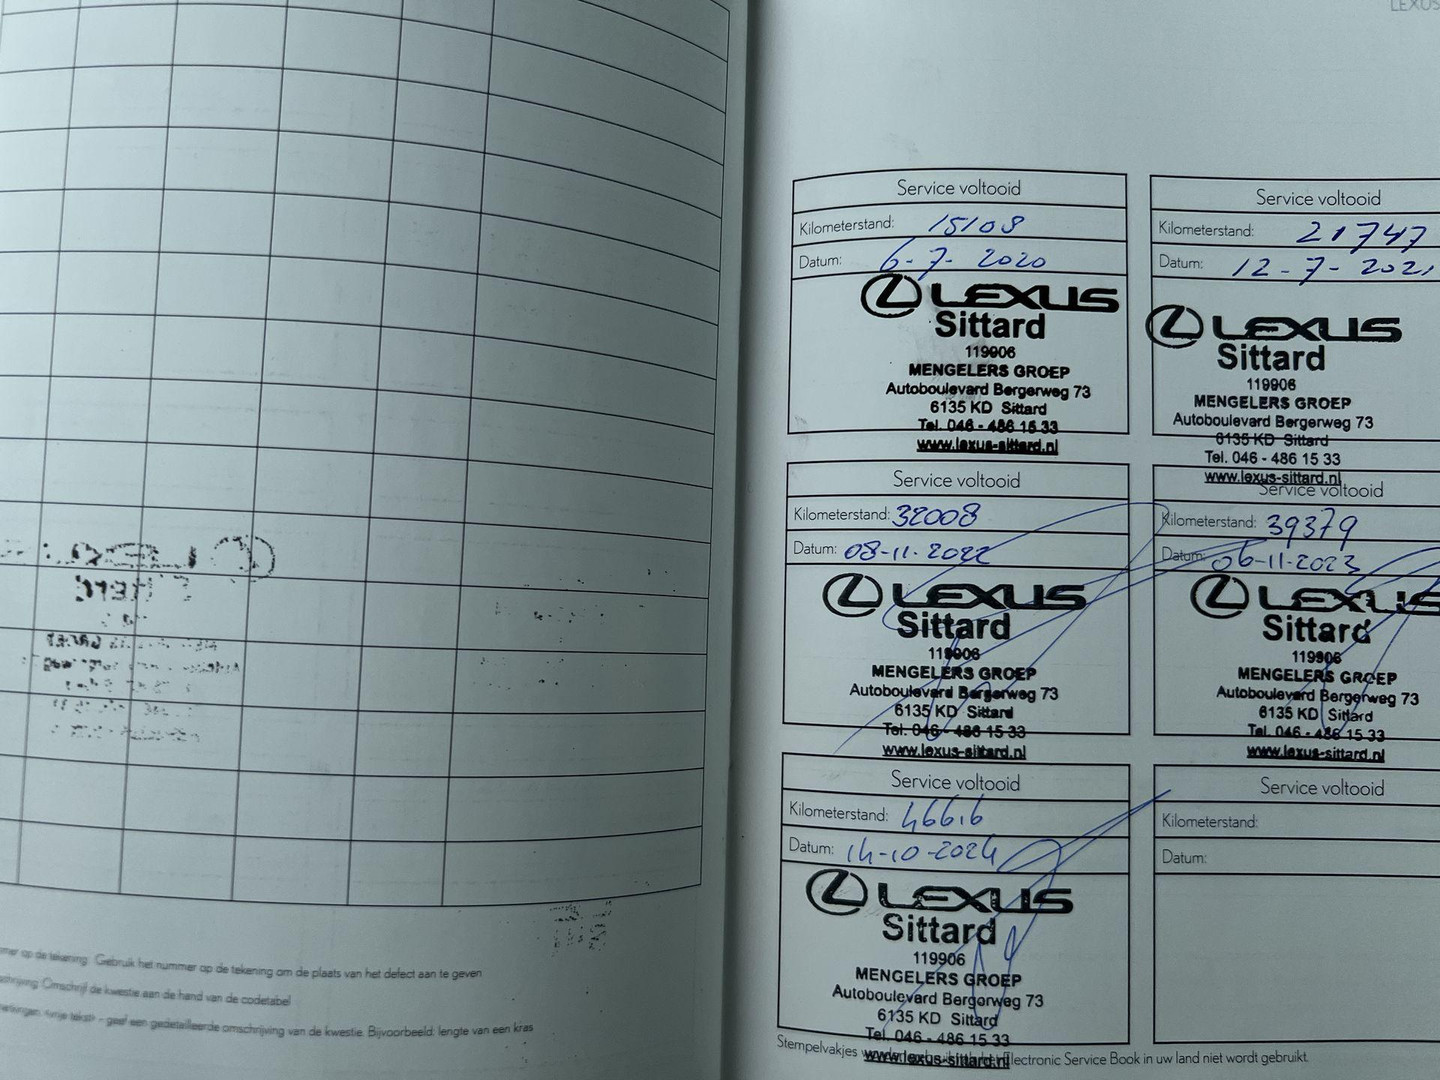 LEXUS
Service voltooid
Kilometerstand: 15108
Datum: 6-7-2020
LEXUS
Sittard
119906
MENGELERS GROEP
Autoboulevard Bergerweg 73
6135 KD Sittard
Tel. 046 - 486 15 33
www.lexus-sittard.nl
Service voltooid
Kilometerstand: 21747
Datum: 12-7-2021
LEXUS
Sittard
119906
MENGELERS GROEP
Autoboulevard Bergerweg 73
6135 KD Sittard
Tel. 046 - 486 15 33
www.lexus-sittard.nl
Service voltooid
Kilometerstand: 32008
Datum: 08-11-2022
LEXUS
Sittard
119906
MENGELERS GROEP
Autoboulevard Bergerweg 73
6135 KD Sittard
Tel. 046 - 486 15 33
www.lexus-sittard.nl
Service voltooid
Kilometerstand: 39379
Datum: 06-11-2023
LEXUS
Sittard
119906
MENGELERS GROEP
Autoboulevard Bergerweg 73
6135 KD Sittard
Tel. 046 - 486 15 33
www.lexus-sittard.nl
Service voltooid
Kilometerstand: 46616
Datum: 14-10-2024
LEXUS
Sittard
119906
MENGELERS GROEP
Autoboulevard Bergerweg 73
6135 KD Sittard
Tel. 046 - 486 15 33
www.lexus-sittard.nl
Service voltooid
Kilometerstand:
Datum:
Stempelvakjes Electronic Service Book in uw land niet wordt gebruikt.
op de tekening: Gebruik het nummer op de tekening om de plaats van het defect aan te geven
Omschrijf de kwestie aan de hand van de codetabel
<vrije tekst> - geef een gedetailleerde omschrijving van de kwestie. Bijvoorbeeld: lengte van een kras